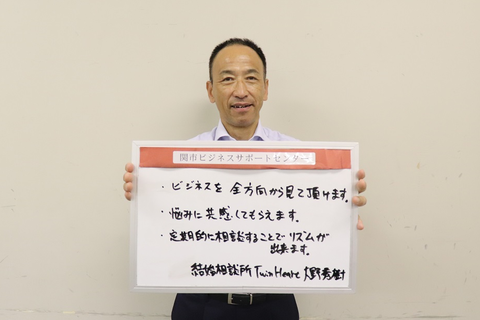 関市ビジネスサポートセンター
・ビジネスを全方向から見て頂けます。
・悩みに共感してもらえます。
・定期的に相談することでリズムが
出来ます。
結婚相談所 Twin Heart 大野秀樹